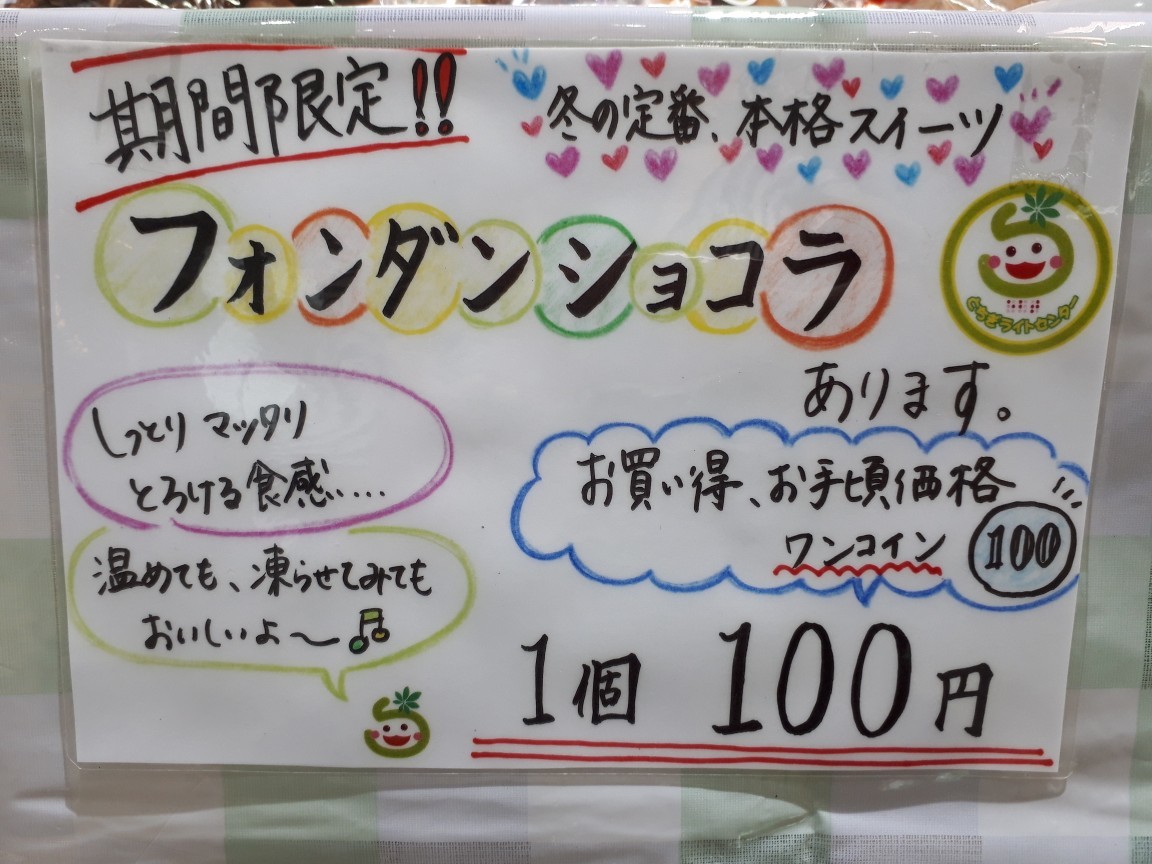 期間限定!!
冬の定番、本格スイーツ
フォンダンショコラ
とちぎライトセンター
あります。
しっとり マッタリ
とろける食感.....
お買い得、お手頃価格
ワンコイン 100
温めても、凍らせてみても
おいしいよ〜♫
1個 100円